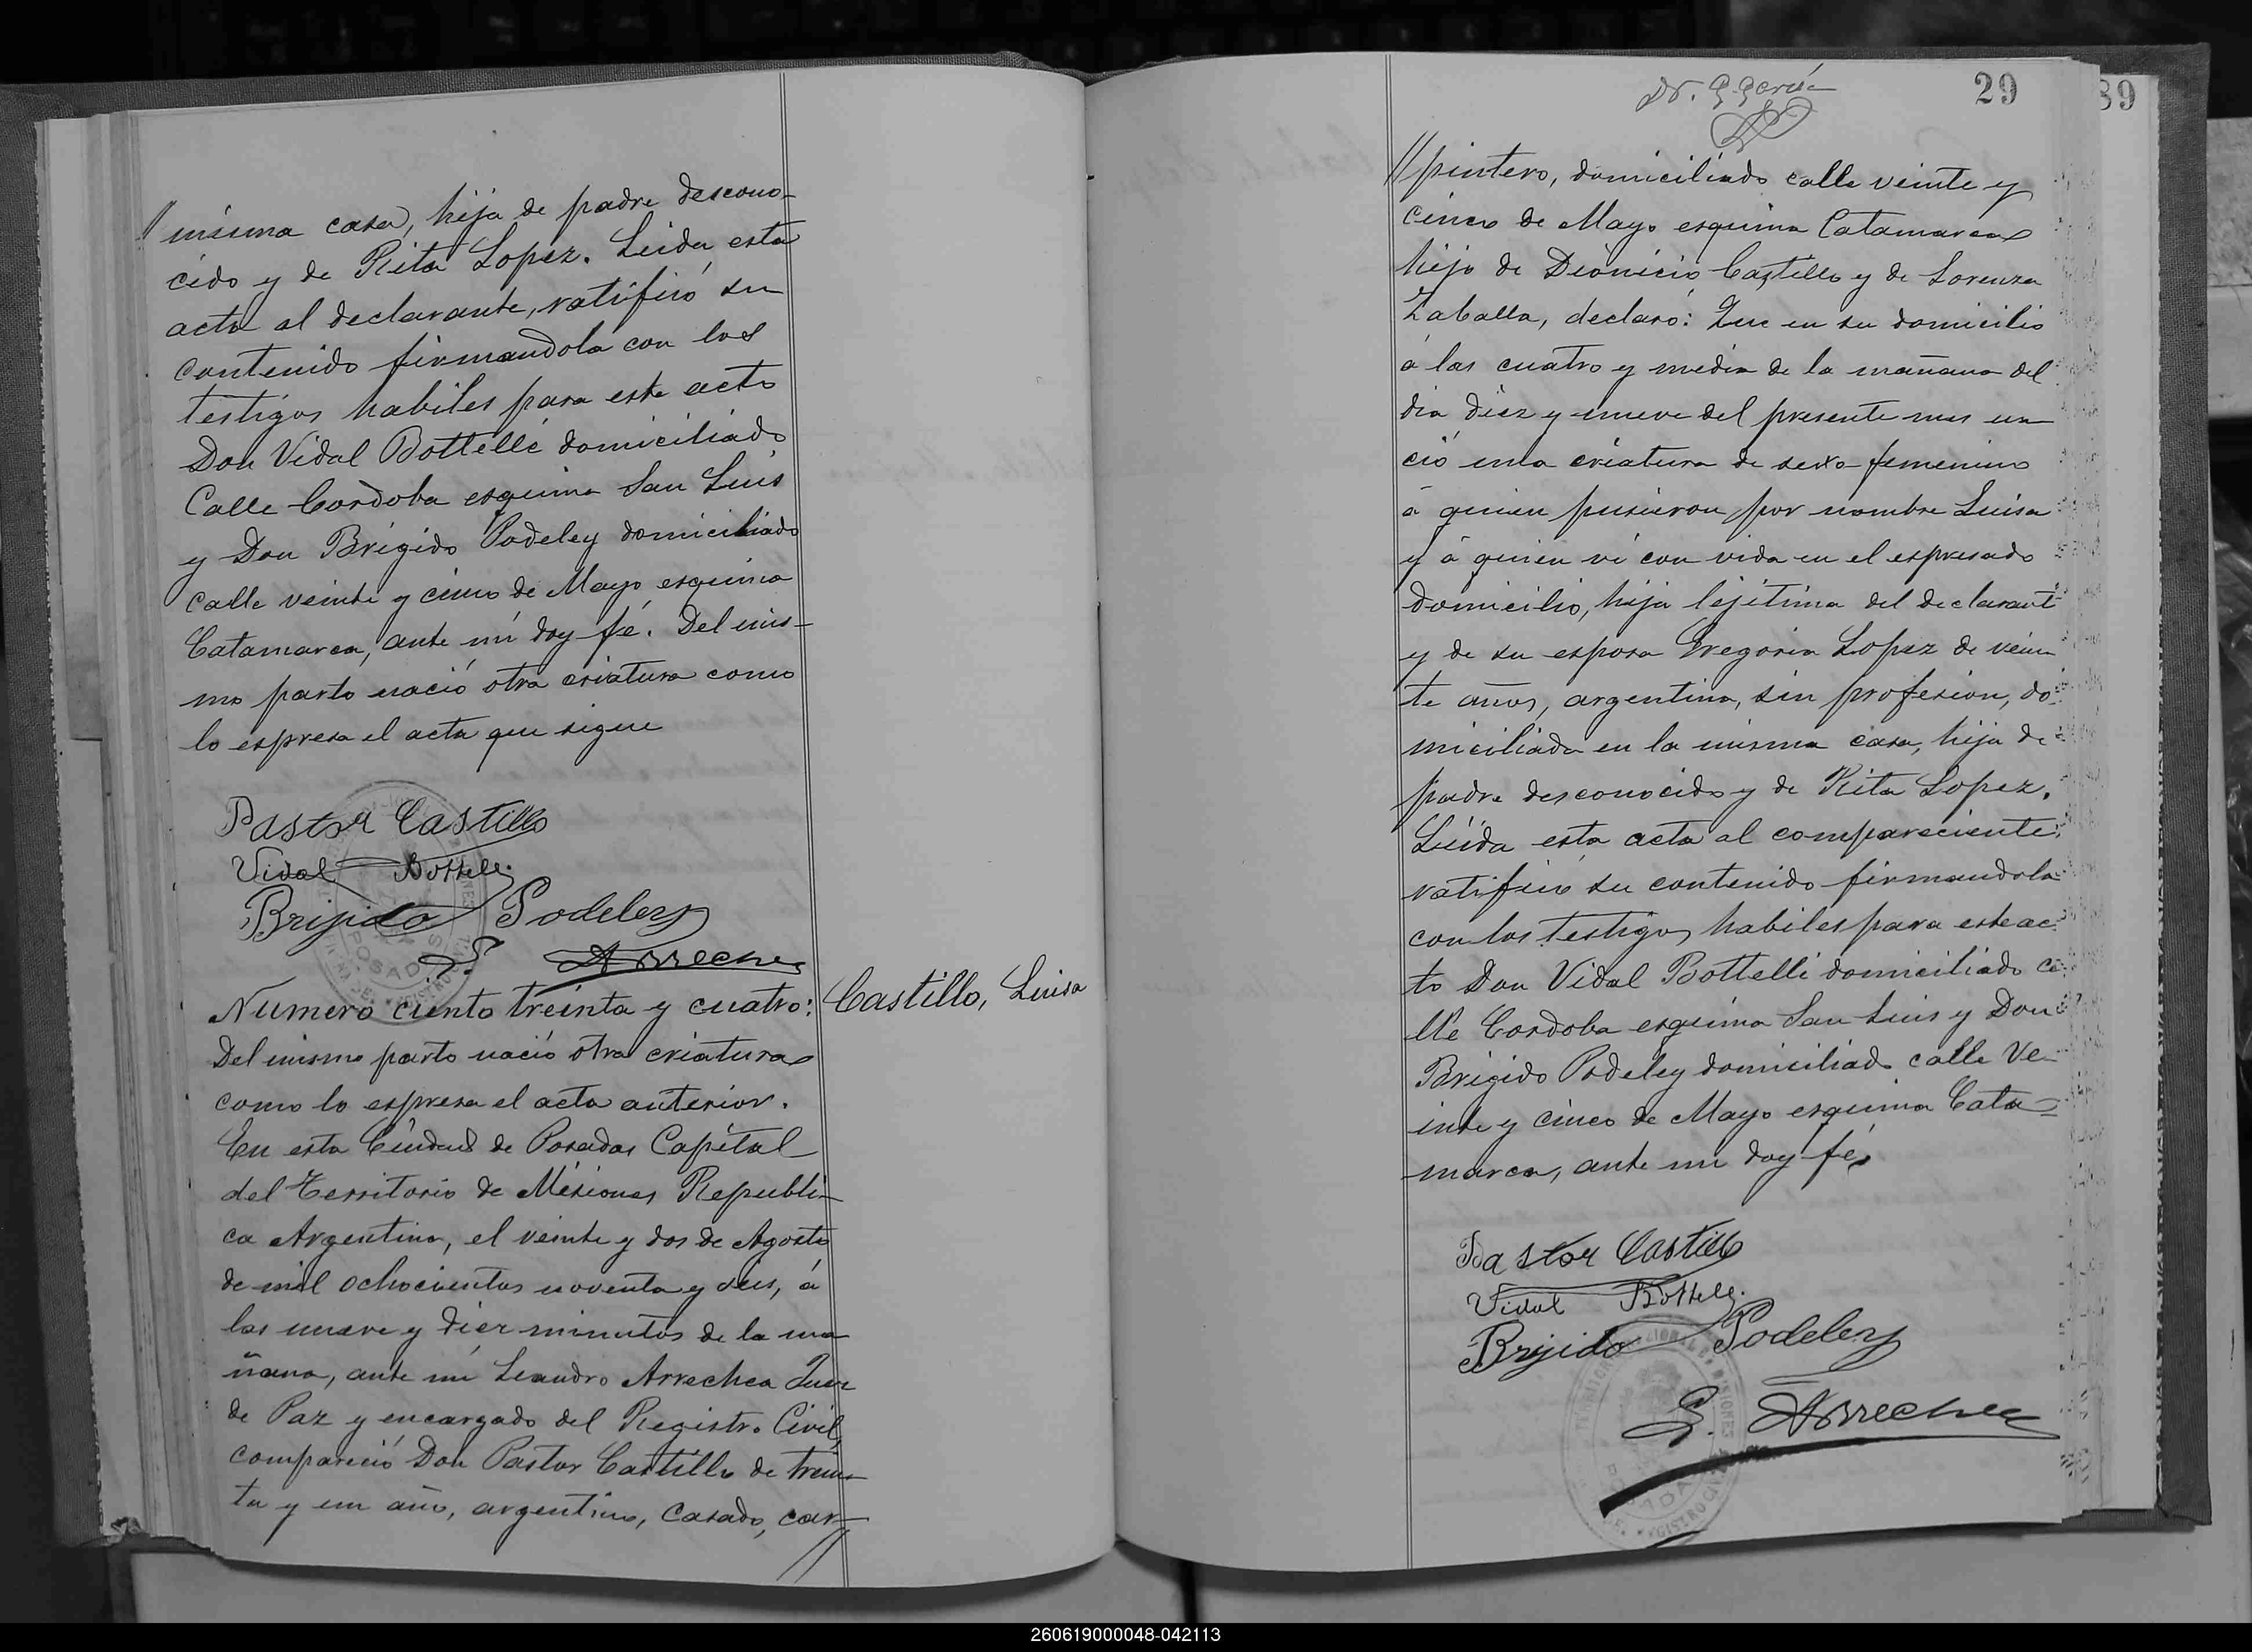 // misma casa, hija de padre descono-
cido y de Rita Lopez. Leida esta
acta al declarante, ratificó su
contenido firmandola con los
testigos habiles para este acto
Don Vidal Bottelli domiciliado
Calle Cordoba esquina San Luis
y Don Brigido Podeley domiciliado
calle veinte y cinco de Mayo esquina
Catamarca, ante mi doy fé. Del mis-
mo parto nació otra criatura como
lo espresa el acta que sigue
Pastor Castillo
Vidal Bottelli
Brijido Podeley
L. Arrechea
Numero ciento treinta y cuatro: Castillo, Luisa
Del mismo parto nació otra criatura
como lo espresa el acta anterior.
En esta Ciudad de Posadas Capital
del Territorio de Misiones Republi-
ca Argentina, el veinte y dos de Agosto
de mil ochocientos noventa y seis, á
las nueve y diez minutos de la ma
ñana, ante mi Leandro Arrechea Juez
de Paz y encargado del Registro Civil,
compareció Don Pastor Castillo de trein-
ta y un año, argentino, casado, car-
//
29
39
// pintero, domiciliado calle veinte y
cinco de Mayo esquina Catamarca
hijo de Dionicio Castillo y de Lorenza
Zaballa, declaró: Que en su domicilio
á las cuatro y media de la mañana del
dia diez y nueve del presente mes na
ció una criatura de sexo femenino
á quien pusieron por nombre Luisa
y á quien ví con vida en el espresado
domicilio, hija lejítima del declarant
y de su esposa Gregoria Lopez de vein
te años, argentina, sin profesion, do
miciliada en la misma casa, hija de
padre desconocido y de Rita Lopez.
Leida esta acta al compareciente
ratificó su contenido firmandola
con los testigos habiles para este ac
to Don Vidal Bottelli domiciliado ca
lle Cordoba esquina San Luis y Don
Brigido Podeley domiciliado calle Ve
inte y cinco de Mayo esquina Cata-
marca, ante mi doy fé,
Pastor Castillo
Vidal Bottelli
Brijido Podeley
L. Arrechea
260619000048-042113